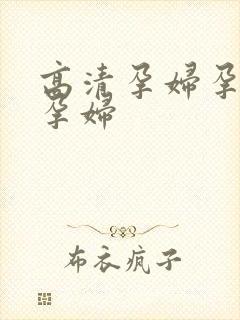 高清孕妇孕
孕妇
布衣疯子